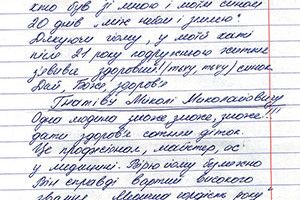 хто був зі мною і моїм сином
20 днів - між небом і землею!
Дякуючи йому, у моїй хаті
після 21 року подружнього життя
з'явився здоровий! (тьху, тьху) синок.
Дай, Боже, здоров'я
Гнатіву Миколі Миколайовичу
Одна людина може, може, може!!!
дати здоров'я сотням діток.
Це професіонал, майстер, ас
у медицині. Вірю йому безмежно
Він справді вартий високого
звання "Людина-гордість року"